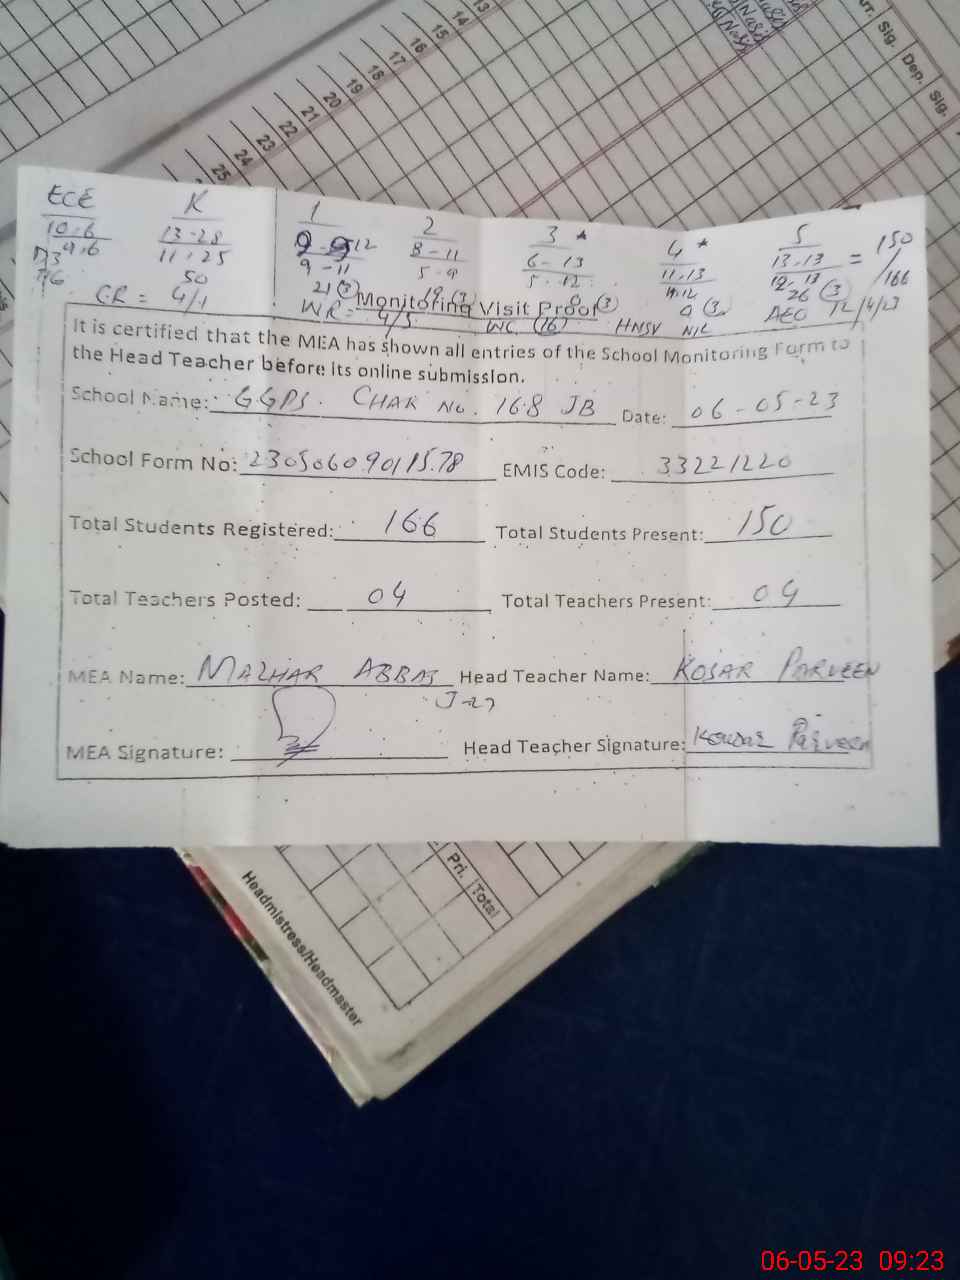 13
14
15
16
17
18
19
20
21
22
23
24
25
Sig. Dep. Sig.
ECE K 1 2 3 * 4 * 5
10.6 13-28 12 8-11 6-13 11.13 13.13 = 150
9.6 11.25 9-11 5.9 5.12 12.13 /166
50 21 (3) 19 (3) 8 (3) 9 (3) 26 (3)
CR = 4/1 WR = 4/5 WC (16) HNSV NIL AEO 12/4/23
Monitoring Visit Proof
It is certified that the MEA has shown all entries of the School Monitoring Form to
the Head Teacher before its online submission.
School Name: GGPS. CHAK No. 168 JB Date: 06-05-23
School Form No: 230506090115578 EMIS Code: 33221220
Total Students Registered: 166 Total Students Present: 150
Total Teachers Posted: 04 Total Teachers Present: 04
MEA Name: MAZHAR ABBAS Head Teacher Name: KOSAR PARVEEN
J-27
MEA Signature: Head Teacher Signature: Kousar Parveen
Pri. Total
Headmistress/Headmaster
06-05-23 09:23